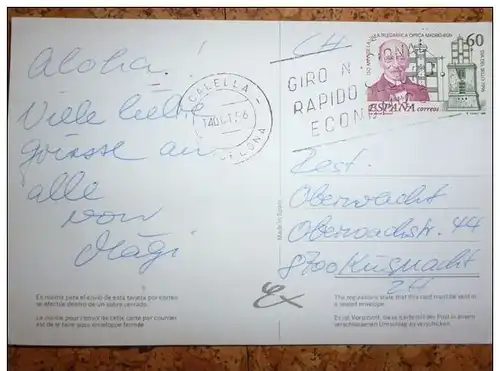 Aloha!
Viele liebe
grüsse an
alle
von
Mägi
CALELLA
BARCELONA
CH
GIRO N
RAPIDO
ECON
TELEGRAFICA OPTICA MADRID-IRUN
60
ESPAÑA correos
Rest.
Oberwacht
Oberwachtstr. 44
8700 Küsnacht
ZH
Made in Spain
Es norma para el envío de esta tarjeta por correo
se efectúe dentro de un sobre cerrado.
La norme pour l'envoi de cette carte par courrier
est de le faire sous enveloppe fermée.
The regulations state that this card must be sent in
a sealed envelope.
Es ist Vorschrift, diese Karte mit der Post in einem
verschlossenen Umschlag zu verschicken.